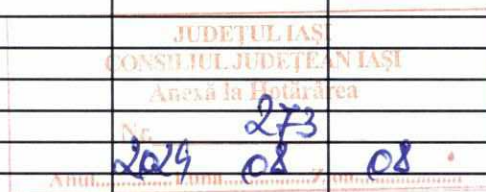 JUDEȚUL IAȘI
CONSILIUL JUDEȚEAN IAȘI
Anexă la Hotărârea
Nr. 273
Anul 2024 Luna 08 Ziua 08